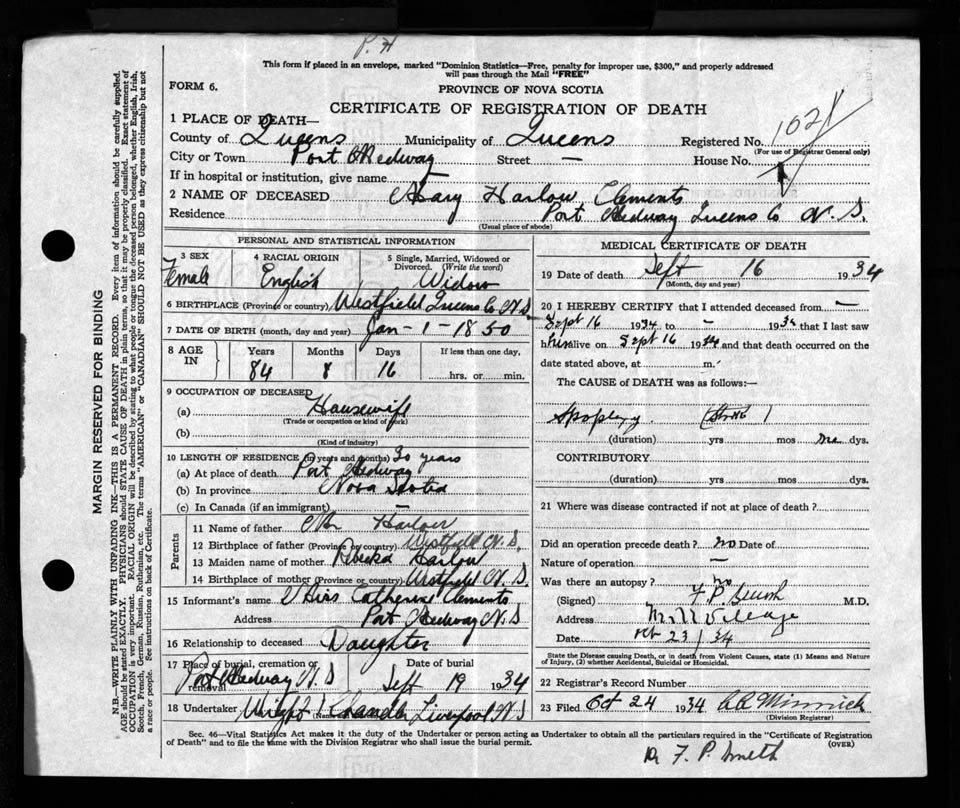 P. H
This form if placed in an envelope, marked "Dominion Statistics—Free, penalty for improper use, $300," and properly addressed
will pass through the Mail "FREE"
FORM 6.
PROVINCE OF NOVA SCOTIA
CERTIFICATE OF REGISTRATION OF DEATH
1 PLACE OF DEATH—
County of Queens Municipality of Queens Registered No. 1021
(For use of Registrar General only)
City or Town Port Medway Street — House No.
If in hospital or institution, give name —
2 NAME OF DECEASED Mary Harlow Clements
Residence Port Medway Queens Co N. S.
(Usual place of abode)
PERSONAL AND STATISTICAL INFORMATION
3 SEX Female
4 RACIAL ORIGIN English
5 Single, Married, Widowed or
Divorced. (Write the word)
Widow
6 BIRTHPLACE (Province or country) Westfield Queens Co N.S
7 DATE OF BIRTH (month, day and year) Jan - 1 - 1850
8 AGE IN
Years Months Days If less than one day,
84 8 16 hrs. or min.
9 OCCUPATION OF DECEASED
(a) Housewife
(Trade or occupation or kind of work)
(b)
(Kind of industry)
10 LENGTH OF RESIDENCE (in years and months) 30 years
(a) At place of death Port Medway
(b) In province Nova Scotia
(c) In Canada (if an immigrant) —
Parents
11 Name of father Harlow
12 Birthplace of father (Province or country) Westfield N.S.
13 Maiden name of mother Rebecka Harlow
14 Birthplace of mother (Province or country) Westfield N. S.
15 Informant's name Miss Catherine Clements
Address Port Medway N.S
16 Relationship to deceased Daughter
17 Place of burial, cremation or
removal Port Medway N.S
Date of burial
Sept 19 1934
18 Undertaker Wright Chandler Liverpool N S
MEDICAL CERTIFICATE OF DEATH
19 Date of death Sept 16 1934
(Month, day and year)
20 I HEREBY CERTIFY that I attended deceased from —
Sept 16 1934 to — 1934 that I last saw
h alive on Sept 16 1934 and that death occurred on the
date stated above, at m.
The CAUSE of DEATH was as follows:—
Apoplexy (Stroke)
(duration) yrs mos dys.
CONTRIBUTORY
(duration) yrs mos dys.
21 Where was disease contracted if not at place of death?
Did an operation precede death? no Date of
Nature of operation —
Was there an autopsy? no
(Signed) F P Smith M.D.
Address Mill Village
Date Oct 23/34
State the Disease causing Death, or in death from Violent Causes, state (1) Means and Nature
of Injury, (2) whether Accidental, Suicidal or Homicidal.
22 Registrar's Record Number
23 Filed Oct 24 1934
(Division Registrar)
Sec. 46—Vital Statistics Act makes it the duty of the Undertaker or person acting as Undertaker to obtain all the particulars required in the "Certificate of Registration
of Death" and to file the same with the Division Registrar who shall issue the burial permit. (OVER)
Dr F. P. Smith
MARGIN RESERVED FOR BINDING
N.B. WRITE PLAINLY WITH UNFADING INK—THIS IS A PERMANENT RECORD. Every item of information should be carefully supplied.
AGE should be stated EXACTLY. PHYSICIANS should STATE CAUSE OF DEATH in plain terms, so that it may be properly classified. Exact statement of
OCCUPATION is very important. RACIAL ORIGIN will be described by stating to what people or tongue the deceased person belonged, whether English, Irish,
Scotch, French, German, Russian, Ruthenian, etc. The terms "AMERICAN" or "CANADIAN" SHOULD NOT BE USED as they express citizenship but not
a race or people. See instructions on back of Certificate.